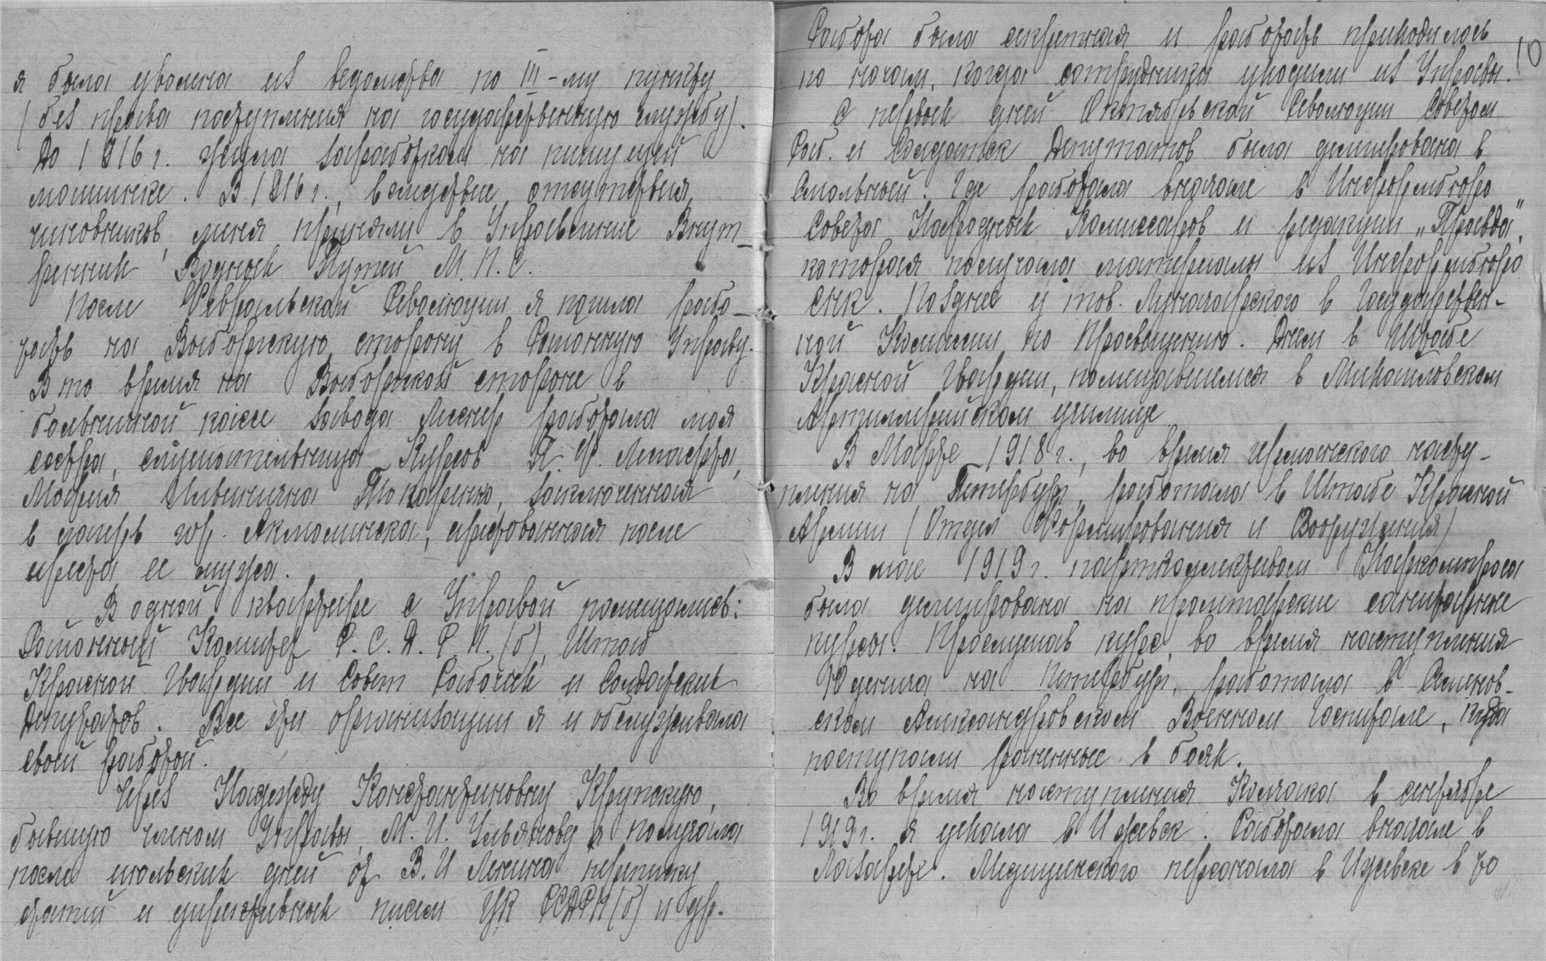 я была уволена из ведомства по III-му пункту
(без права поступления на государственную службу).
До 1916 г. жила заработком на пишущей
машинке. В 1916 г., вследствие отсутствия
чиновников, меня приняли в Управление Внут-
ренних Водных Путей М.П.С.
После Февральской Революции я пошла рабо-
тать на Выборгскую сторону в Районную Управу.
В то время на Выборгской стороне в
больничной кассе завода Лесснер работала моя
сестра, слушательница Курсов П.Ф. Лесгафта,
Мария Ильинична, заключенная
в лагерь гор. Акмолинска, арестованная после
ареста ее мужа.
В одной квартире с Управой помещались:
Районный Комитет Р.С.Д.Р.П.(б), Штаб
Красной Гвардии и Совет Рабочих и Солдатских
Депутатов. Все эти организации я и обслуживала
своей работой.
Через Надежду Константиновну Крупскую,
бывшую членом Управы, М.И. Ульянову я получала
после июльских дней от В.И Ленина переписку
статей и директивных писем ЦК РСДРП(б) и др.
10
Работа была секретная и работать приходилось
по ночам, когда сотрудники уходили из Управы.
С первых дней Октябрьской Революции Советом
Раб. и Солдатск Депутатов была делигирована в
Смольный. Где работала вначале в Информбюро
Совета Народных Комиссаров и редакции „Правда",
которая получала материалы из Информбюро
СНК. Позднее у тов. Луначарского в Государствен-
ной Комиссии по Просвещению. Затем в Штабе
Красной Гвардии, помещавшемся в Михайловском
Артиллерийском училище
В Марте 1918 г., во время германского насту-
пления на Петербург, работала в Штабе Красной
Армии (Отдел Формирования и Вооружения)
В мае 1919 г. партколлективом Наркомпроса
была делигирована на пролетарские санитарные
курсы. Прослушав курсы, во время наступления
Юденича на Петербург, работала в Семенов-
ском Александровском Военном госпитале, куда
поступали раненные в боях.
Во время наступления Колчака в сентябре
1919 г. я уехала в Ижевск. Работала вначале в
Лазарете. Медицинского персонала в Ижевске в то